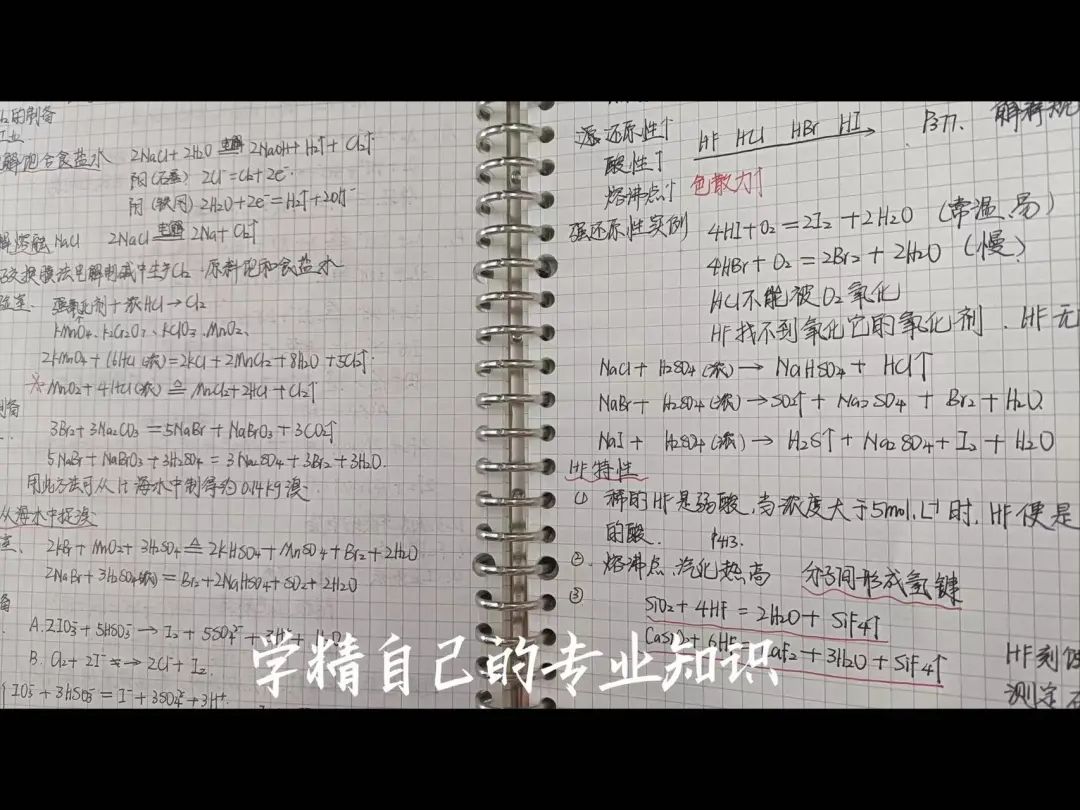 的制备
工业
解饱合食盐水 2NaCl + 2H₂O 电解 2NaOH + H₂↑ + Cl₂↑
阳(石墨) 2Cl⁻ = Cl₂ + 2e⁻
阴(铁网) 2H₂O + 2e⁻ = H₂↑ + 2OH⁻
解熔融NaCl 2NaCl 电解 2Na + Cl₂↑
交换膜法电解制碱中生产Cl₂ 原料饱和食盐水
强氧化剂 + 浓HCl → Cl₂
KMnO₄、K₂Cr₂O₇、KClO₃、MnO₂、
2KMnO₄ + 16HCl(浓) = 2KCl + 2MnCl₂ + 8H₂O + 5Cl₂↑
MnO₂ + 4HCl(浓) △ MnCl₂ + 2H + Cl₂↑
制备
3Br₂ + 3Na₂CO₃ = 5NaBr + NaBrO₃ + 3CO₂↑
5NaBr + NaBrO₃ + 3H₂SO₄ = 3Na₂SO₄ + 3Br₂ + 3H₂O.
用此方法可从1t海水中制得约0.14kg溴.
从海水中提溴
2KBr + MnO₂ + 3H₂SO₄ △ 2KHSO₄ + MnSO₄ + Br₂ + 2H₂O
2NaBr + 3H₂SO₄(浓) = Br₂ + 2NaHSO₄ + SO₂ + 2H₂O
备
A. 2IO₃⁻ + 5HSO₃⁻ → I₂ + 5SO₄²⁻ + 3H⁺ + H₂O
B. Cl₂ + 2I⁻ → 2Cl⁻ + I₂
IO₃⁻ + 3HSO₃⁻ = I⁻ + 3SO₄²⁻ + 3H⁺.
还原性↑ HF HCl HBr HI P377.
酸性↑
熔沸点↑ 色散力↑
强还原性实例 4HI + O₂ = 2I₂ + 2H₂O (常温,易)
4HBr + O₂ = 2Br₂ + 2H₂O (慢)
HCl不能被O₂氧化
HF找不到氧化它的氧化剂. HF无
NaCl + H₂SO₄(浓) → NaHSO₄ + HCl↑
NaBr + H₂SO₄(浓) → SO₂↑ + Na₂SO₄ + Br₂ + H₂O.
NaI + H₂SO₄(浓) → H₂S↑ + Na₂SO₄ + I₂ + H₂O
HF特性
① 稀的HF是弱酸,当浓度大于5mol.L⁻¹时,HF便是
的酸. P413.
②. 熔沸点、汽化热高 分子间形成氢键
③ SiO₂ + 4HF = 2H₂O + SiF₄↑
CaSiO₃ + 6HF = CaF₂ + 3H₂O + SiF₄↑
HF刻蚀
测定
学精自己的专业知识